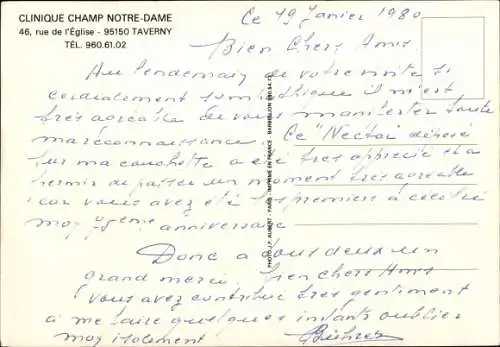 CLINIQUE CHAMP NOTRE-DAME
46, rue de l'Église - 95150 TAVERNY
TÉL. 960.61.02
Ce 19 Janvier 1980
Bien Chers Amis
Au lendemain de votre visite si
cordialement sympathique il m'est
très agréable de vous manifester toute
ma reconnaissance. Ce "Nectar" déposé
sur ma couchette a été très apprécié et a
permis de passer un moment très agréable
car vous avez été les premiers à célébrer
mon anniversaire
Donc à vous deux un
grand merci, bien chers Amis
vous avez contribué très gentiment
à me faire quelques instants oublier
mon isolement
PHOTO J.P. AUBERT - PARIS - IMPRIMÉ EN FRANCE